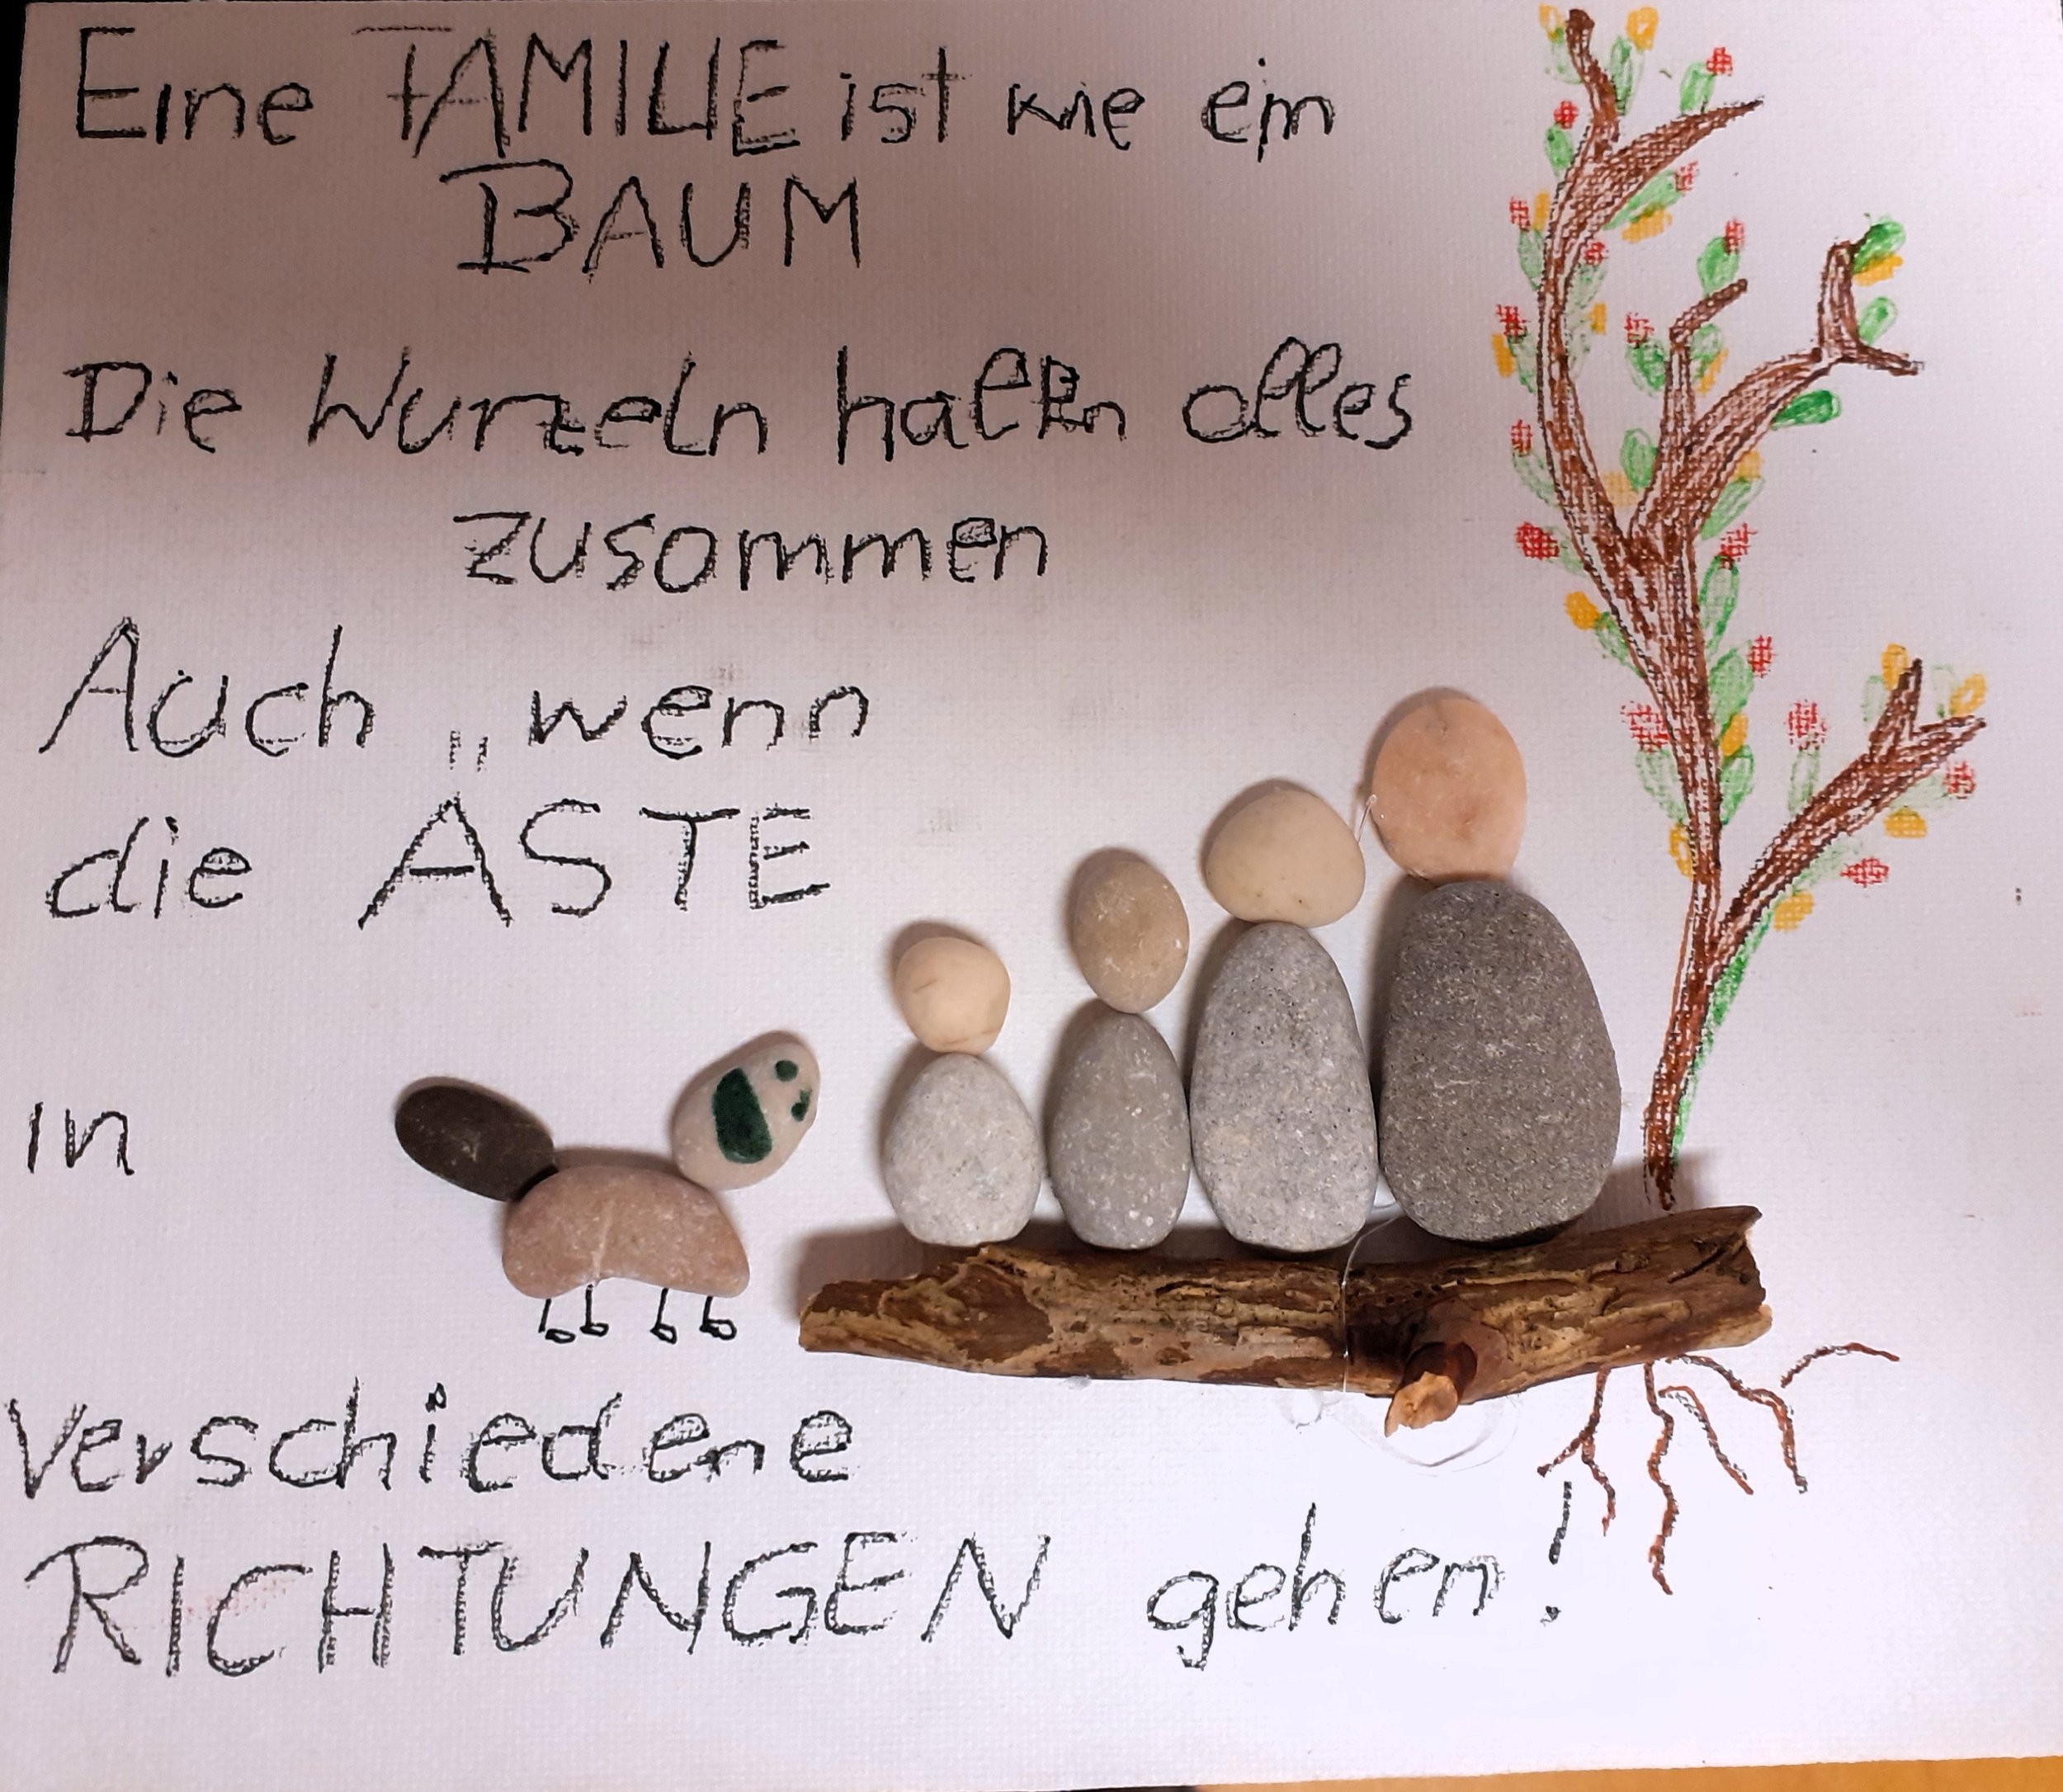 Eine FAMILIE ist wie ein
BAUM
Die Wurzeln halten alles
zusammen
Auch wenn
die ÄSTE
in
verschiedene
RICHTUNGEN gehen!